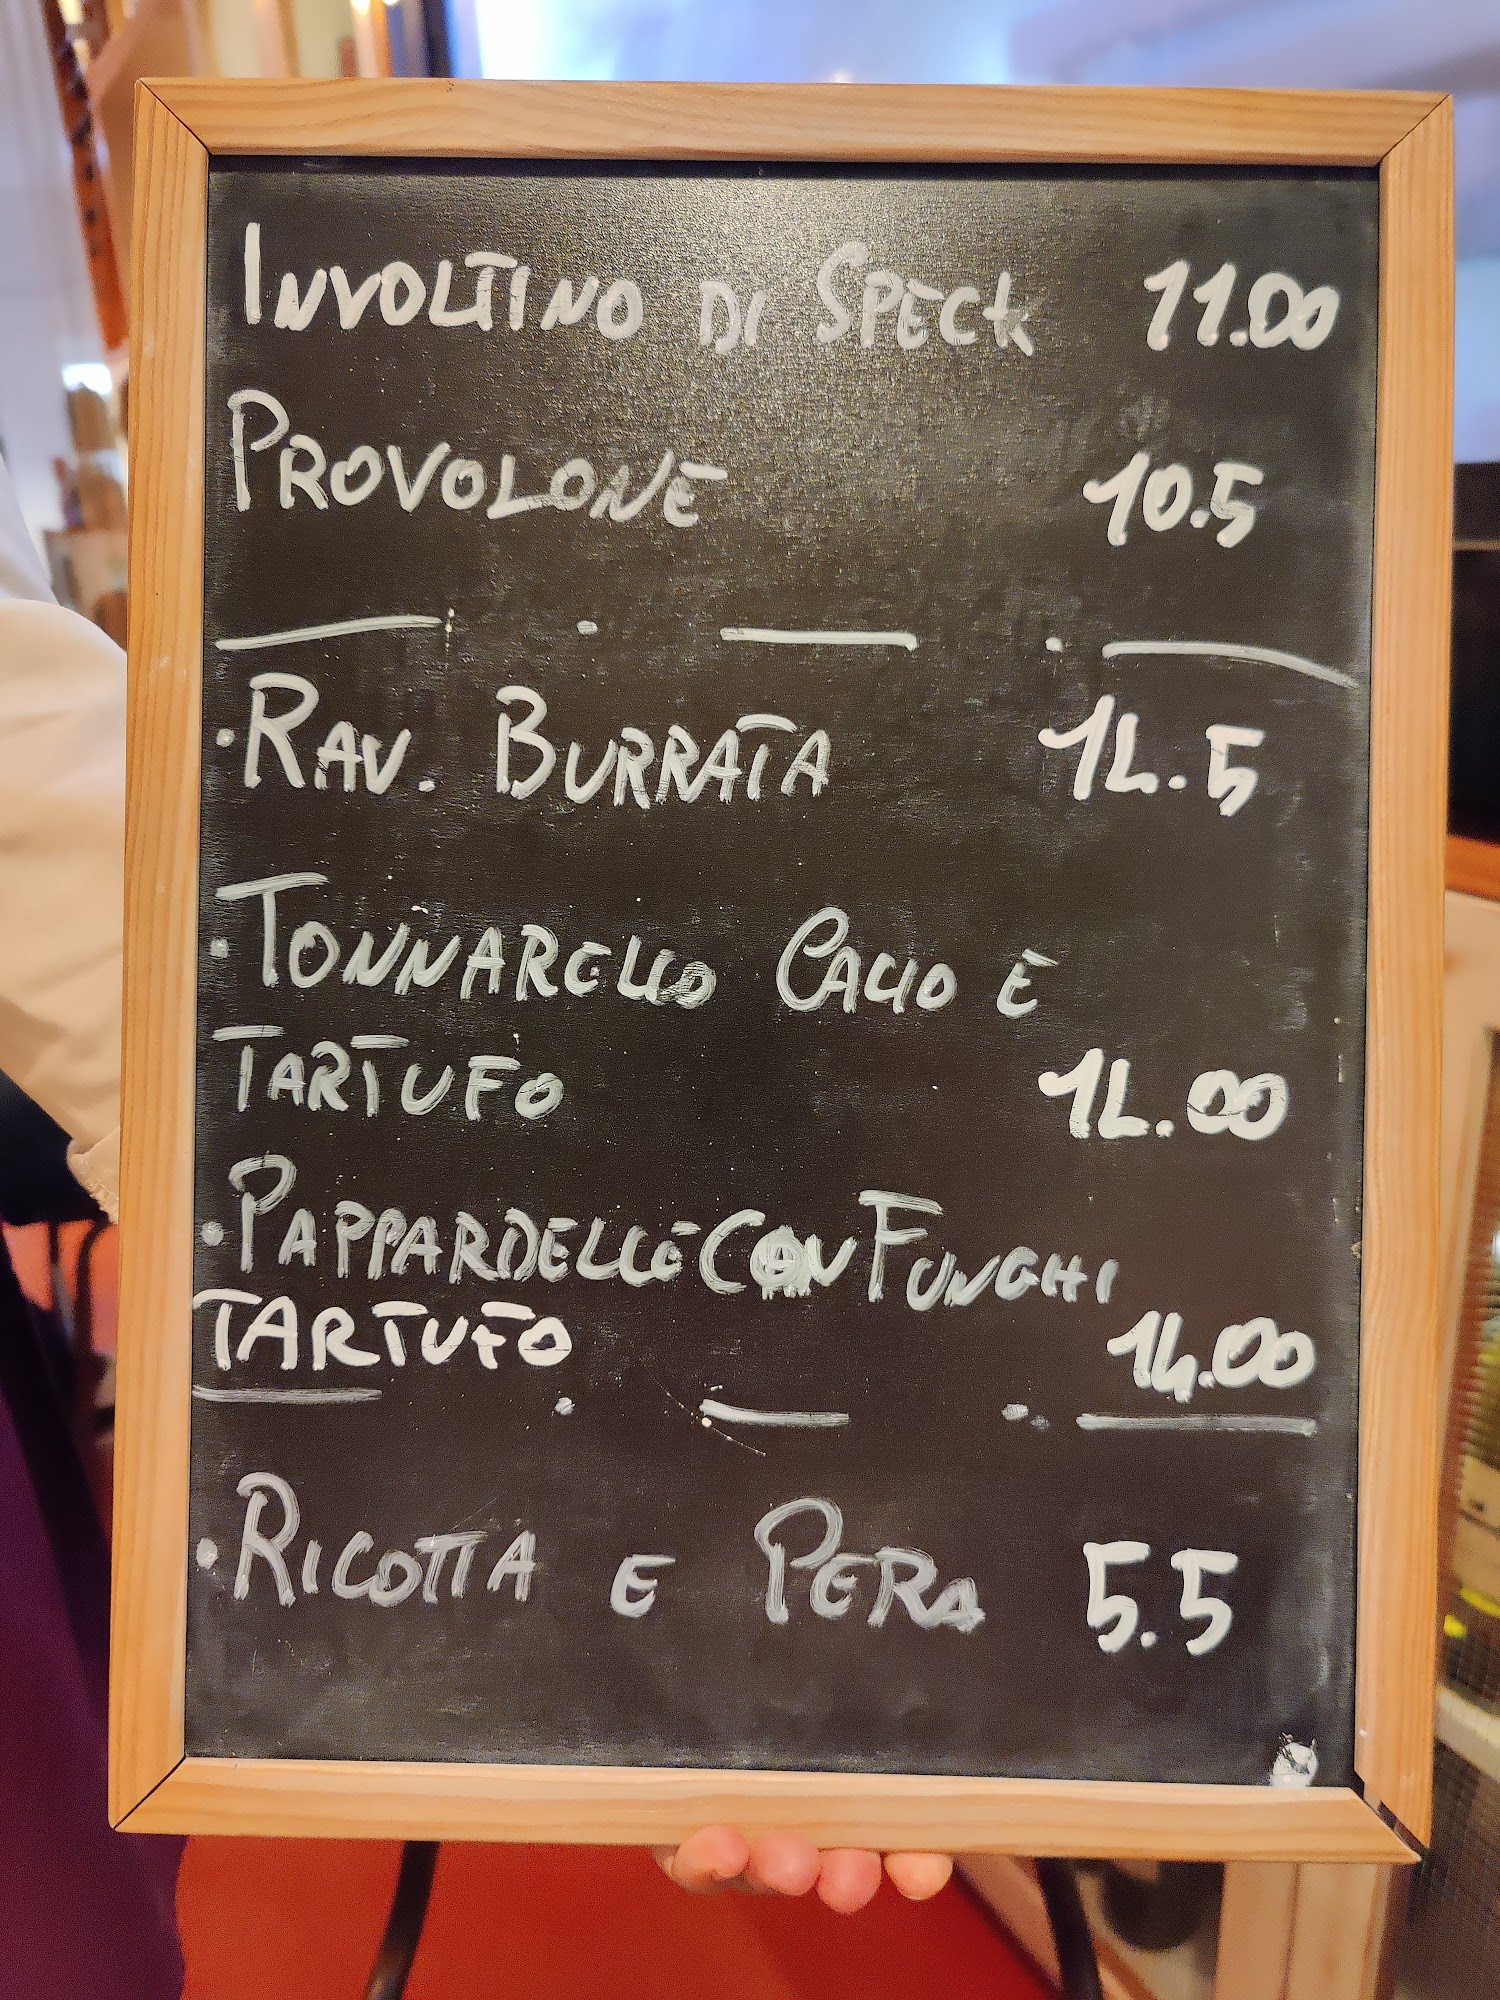 INVOLTINO DI SPECK 11.00
PROVOLONE 10.5
• RAV. BURRATA 14.5
• TONNARELLO CACIO E
TARTUFO 14.00
• PAPPARDELLE CON FUNGHI
TARTUFO 14.00
• RICOTTA E PERA 5.5